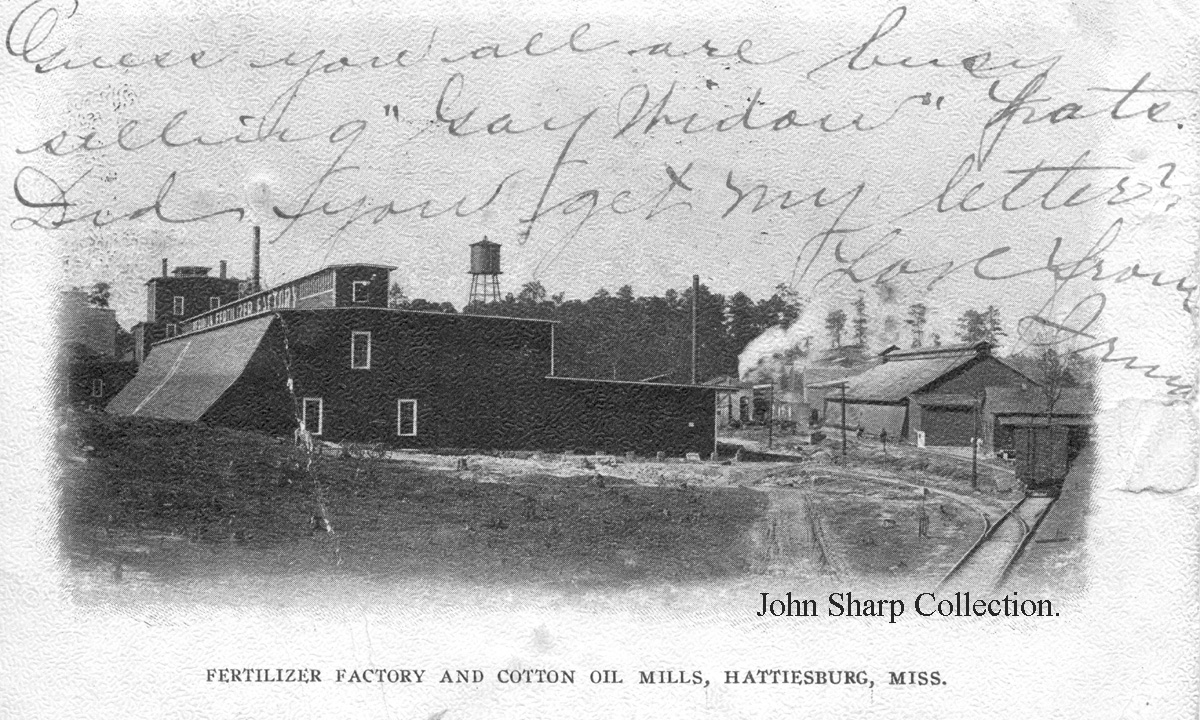 Guess you all are busy
selling "Gay Widow" hats.
Did you get my letter?
Love from
Irma
FERTILIZER FACTORY
John Sharp Collection.
FERTILIZER FACTORY AND COTTON OIL MILLS, HATTIESBURG, MISS.